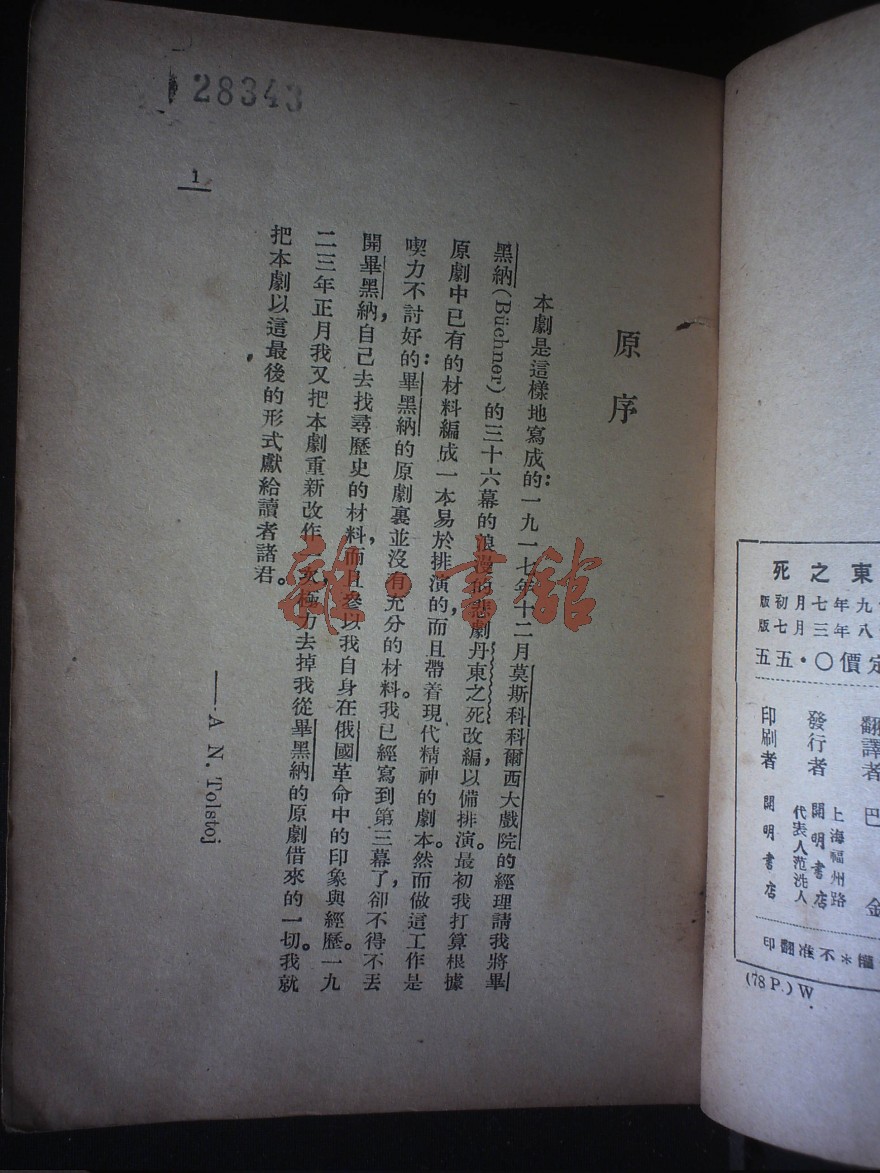 28343
原序
本劇是這樣地寫成的：一九一七年十二月莫斯科科爾西大戲院的經理請我將畢
黑納(Büchner)的三十六幕的浪漫的悲劇丹東之死改編，以備排演。最初我打算根據
原劇中已有的材料編成一本易於排演的，而且帶着現代精神的劇本。然而做這工作是
喫力不討好的：畢黑納的原劇裏並沒有充分的材料。我已經寫到第三幕了，卻不得不丟
開畢黑納，自己去找尋歷史的材料，而且參以我自身在俄國革命中的印象與經歷。一九
二三年正月我又把本劇重新改作一次，極力去掉我從畢黑納的原劇借來的一切。我就
把本劇以這最後的形式獻給讀者諸君。
——A N. Tolstoj
1
雜·書館
東之死
九年七月初版
八年三月七版
定價〇·五五
翻譯者 巴金
發行者 開明書店
上海福州路
代表人范洗人
印刷者 開明書店
權＊不准翻印
(78 P.) W